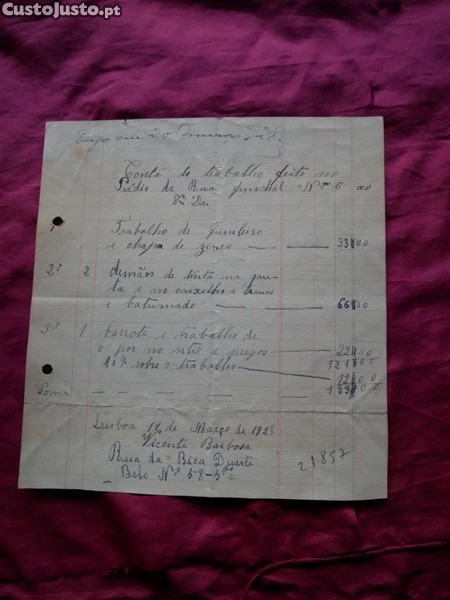 CustoJusto.pt
20 Março 928.
Conta do trabalho feito no
Prédio da Rua Nº 6 ao
1 Trabalho de
e chapa de zinco — — 33$00
2º 2 demãos de tinta na
ta e no caixilho a branco
e batumado — — 66$00
3º 1 barrote e trabalho de
o por no sitio e pregos — 22$00
121$00
10% sobre o trabalho — 12$00
Soma — — — — 133$00
Lisboa 17 de Março de 1928
Vicente Barbosa
Rua da Bica Duarte
Belo Nº 58-3º
21857